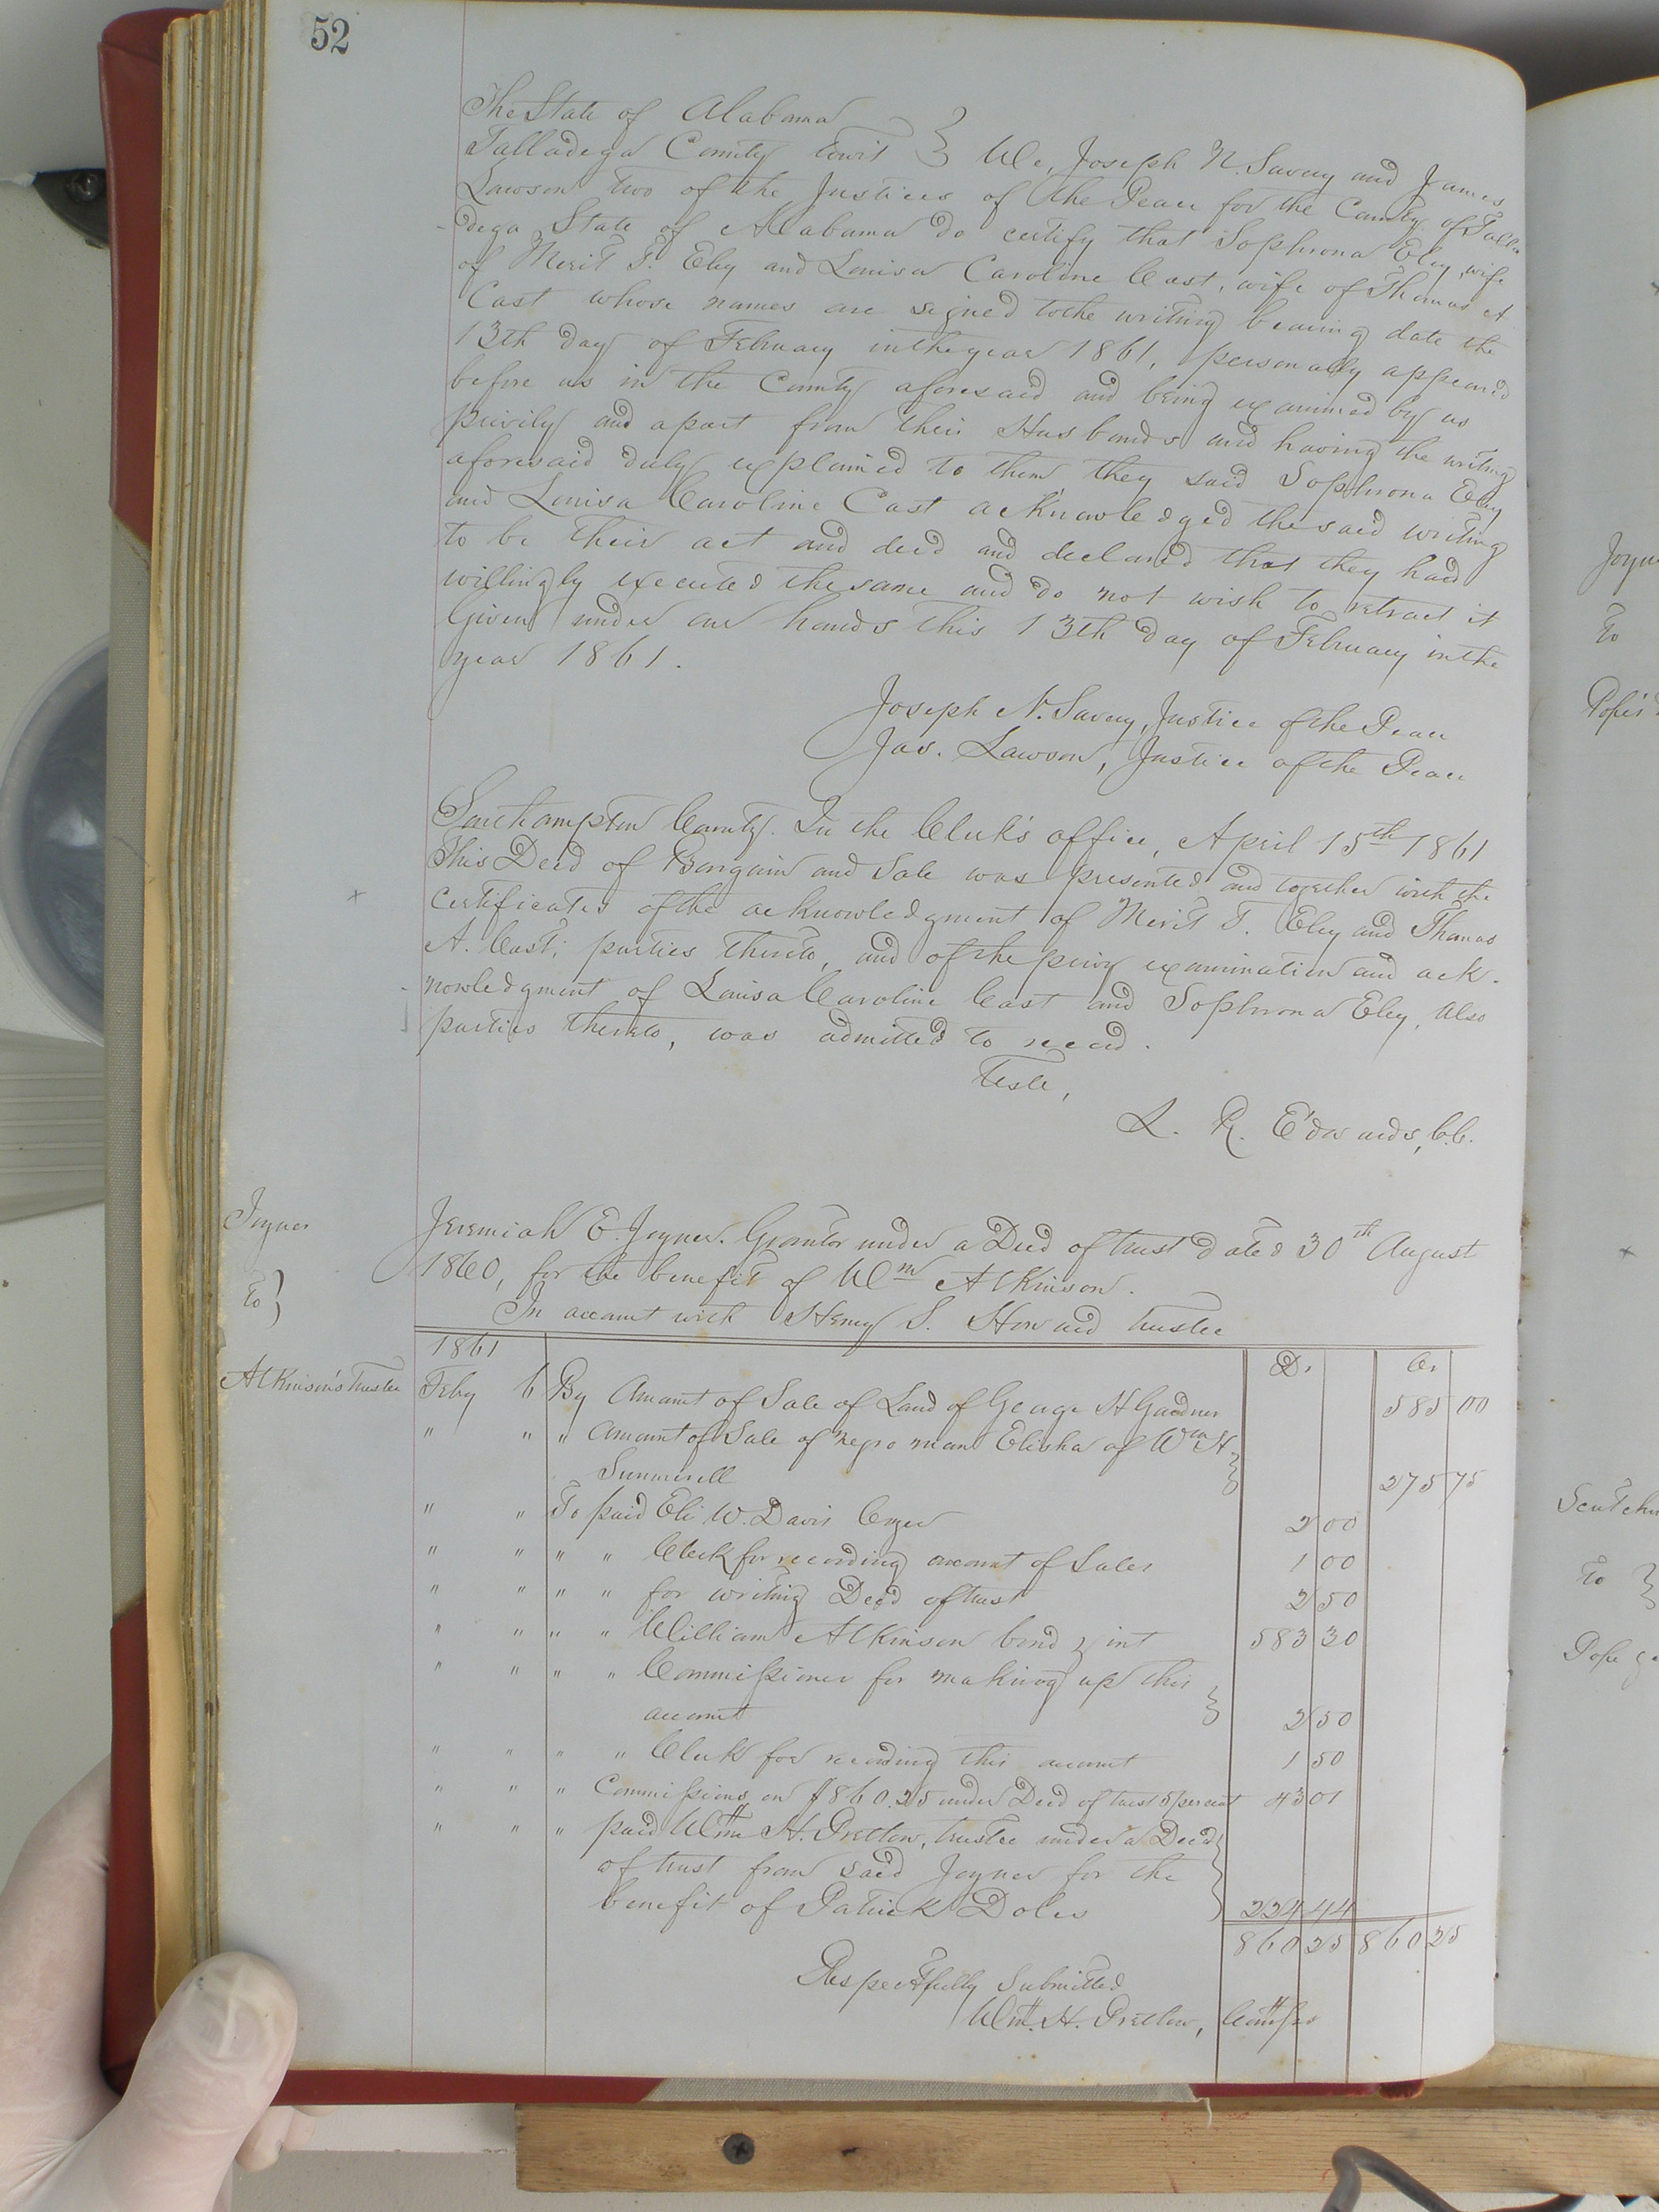 52
The State of Alabama
Talladega County towit } We, Joseph N. Savery and James
Lawson two of the Justices of the Peace for the County of Talla-
-dega State of Alabama do certify that Sophrona Eley, wife
of Merit T. Eley and Louisa Caroline Cast, wife of Thomas A
Cast whose names are signed to the writing bearing date the
13th day of February in the year 1861, personally appeared
before us in the County aforesaid and being examined by us
privily and apart from their Husbands and having the writing
aforesaid duly explained to them they said Sophrona Eley
and Louisa Caroline Cast acknowledged the said writing
to be their act and deed and declared that they had
willingly executed the same and do not wish to retract it
Given under our hands this 13th day of February in the
year 1861.
Joseph N. Savery, Justice of the Peace
Jas. Lawson, Justice of the Peace
Southampton County. In the Clerk's office, April 15th 1861
This Deed of Bargain and Sale was presented and together with the
Certificates of the acknowledgment of Merit T. Eley and Thomas
A. Cast, parties thereto, and of the privy examination and ack-
-nowledgment of Louisa Caroline Cast and Sophrona Eley, also
parties thereto, was admitted to record.
Teste,
L. R. Edwards, C.C.
Joyner
To }
Atkinson's Trustee
Jeremiah E. Joyner. Grantor under a Deed of trust dated 30th August
1860, for the benefit of Wm Atkinson.
In account with Henry S. Howard trustee
1861 Dr Cr
Feby 6 By Amount of Sale of Land of George H Gardner 585 00
" " " Amount of Sale of negro man Elisha of Wm H.
Summerell } 275 75
" " To paid Eli W. Davis Cryer 2 00
" " " " Clerk for recording account of Sales 1 00
" " " " for writing Deed of trust 2 50
" " " " William Atkinson bond & int 583 30
" " " " Commissioner for making up this
account } 2 50
" " " " Clerk for recording this account 1 50
" " " Commissions on $860.25 under Deed of trust 5 per cent 43 01
" " " paid Wm H. Pretlow, trustee under a Deed
of trust from said Joyner for the
benefit of Patrick Doles } 224 44
860 25 860 25
Respectfully Submitted
Wm. H. Pretlow, Commr
Joyn
To
Pope's
To }
Pope &